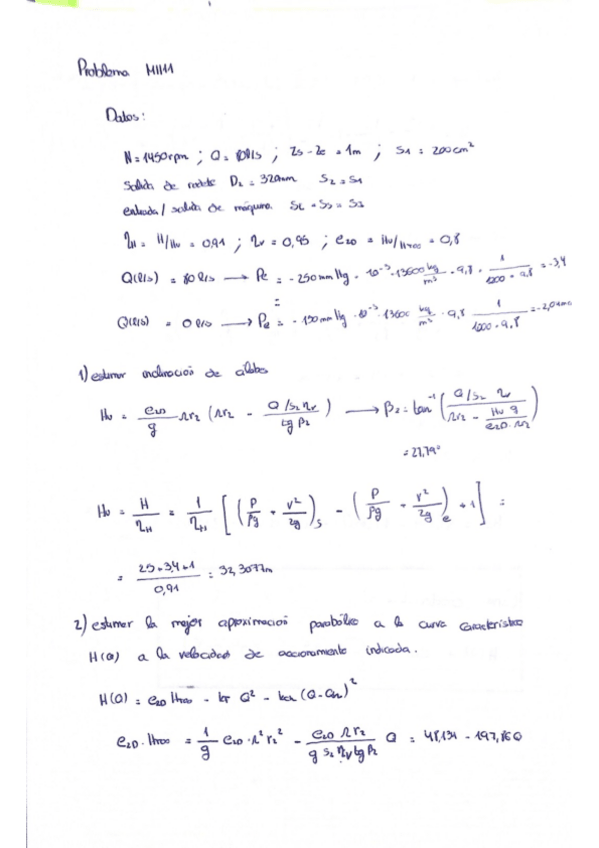 Problema M1111
Datos:
N = 1450rpm ; Q = 80l/s ; zs - ze = 1m ; S1 = 200cm²
Salida de rodete D2 = 320mm S2 = S1
entrada / salida de máquina Se = Ss = S3
ηH = H/Hu = 0,91 ; ηv = 0,95 ; e20 = Hu/Ht∞ = 0,8
Q(l/s) = 80 l/s → Pe = -250mmHg · 10⁻³ · 13600 kg/m³ · 9,8 · 1/(1000 · 9,8) = -3,4
=
Q(l/s) = 0 l/s → Pe = -150mmHg · 10⁻³ · 13600 kg/m³ · 9,8 1/(1000 · 9,8) = -2,04mc
1) estimar inclinación de álabes
Hu = e20/g Ωr2 (Ωr2 - (Q/S2 ηv)/tg β2) → β2 = tan⁻¹ ( (Q/S2 ηv) / (Ωr2 - Hu g/(e20 · Ωr2)) )
= 27,79°
Hu = H/ηH = 1/ηH [ (P/ρg + v²/2g)s - (P/ρg + v²/2g)e + 1 ] =
= (25+3,4+1)/0,91 = 32,3077m
2) estimar la mejor aproximación parabólica a la curva característica
H(Q) a la velocidad de accionamiento indicada.
H(Q) = e20 Ht∞ - kr Q² - (Q-Qn)²
e20 · Ht∞ = 1/g e20 · Ω² r2² - (e20 Ω r2)/(g S2 ηv tg β2) Q = 48,134 - 197,86Q